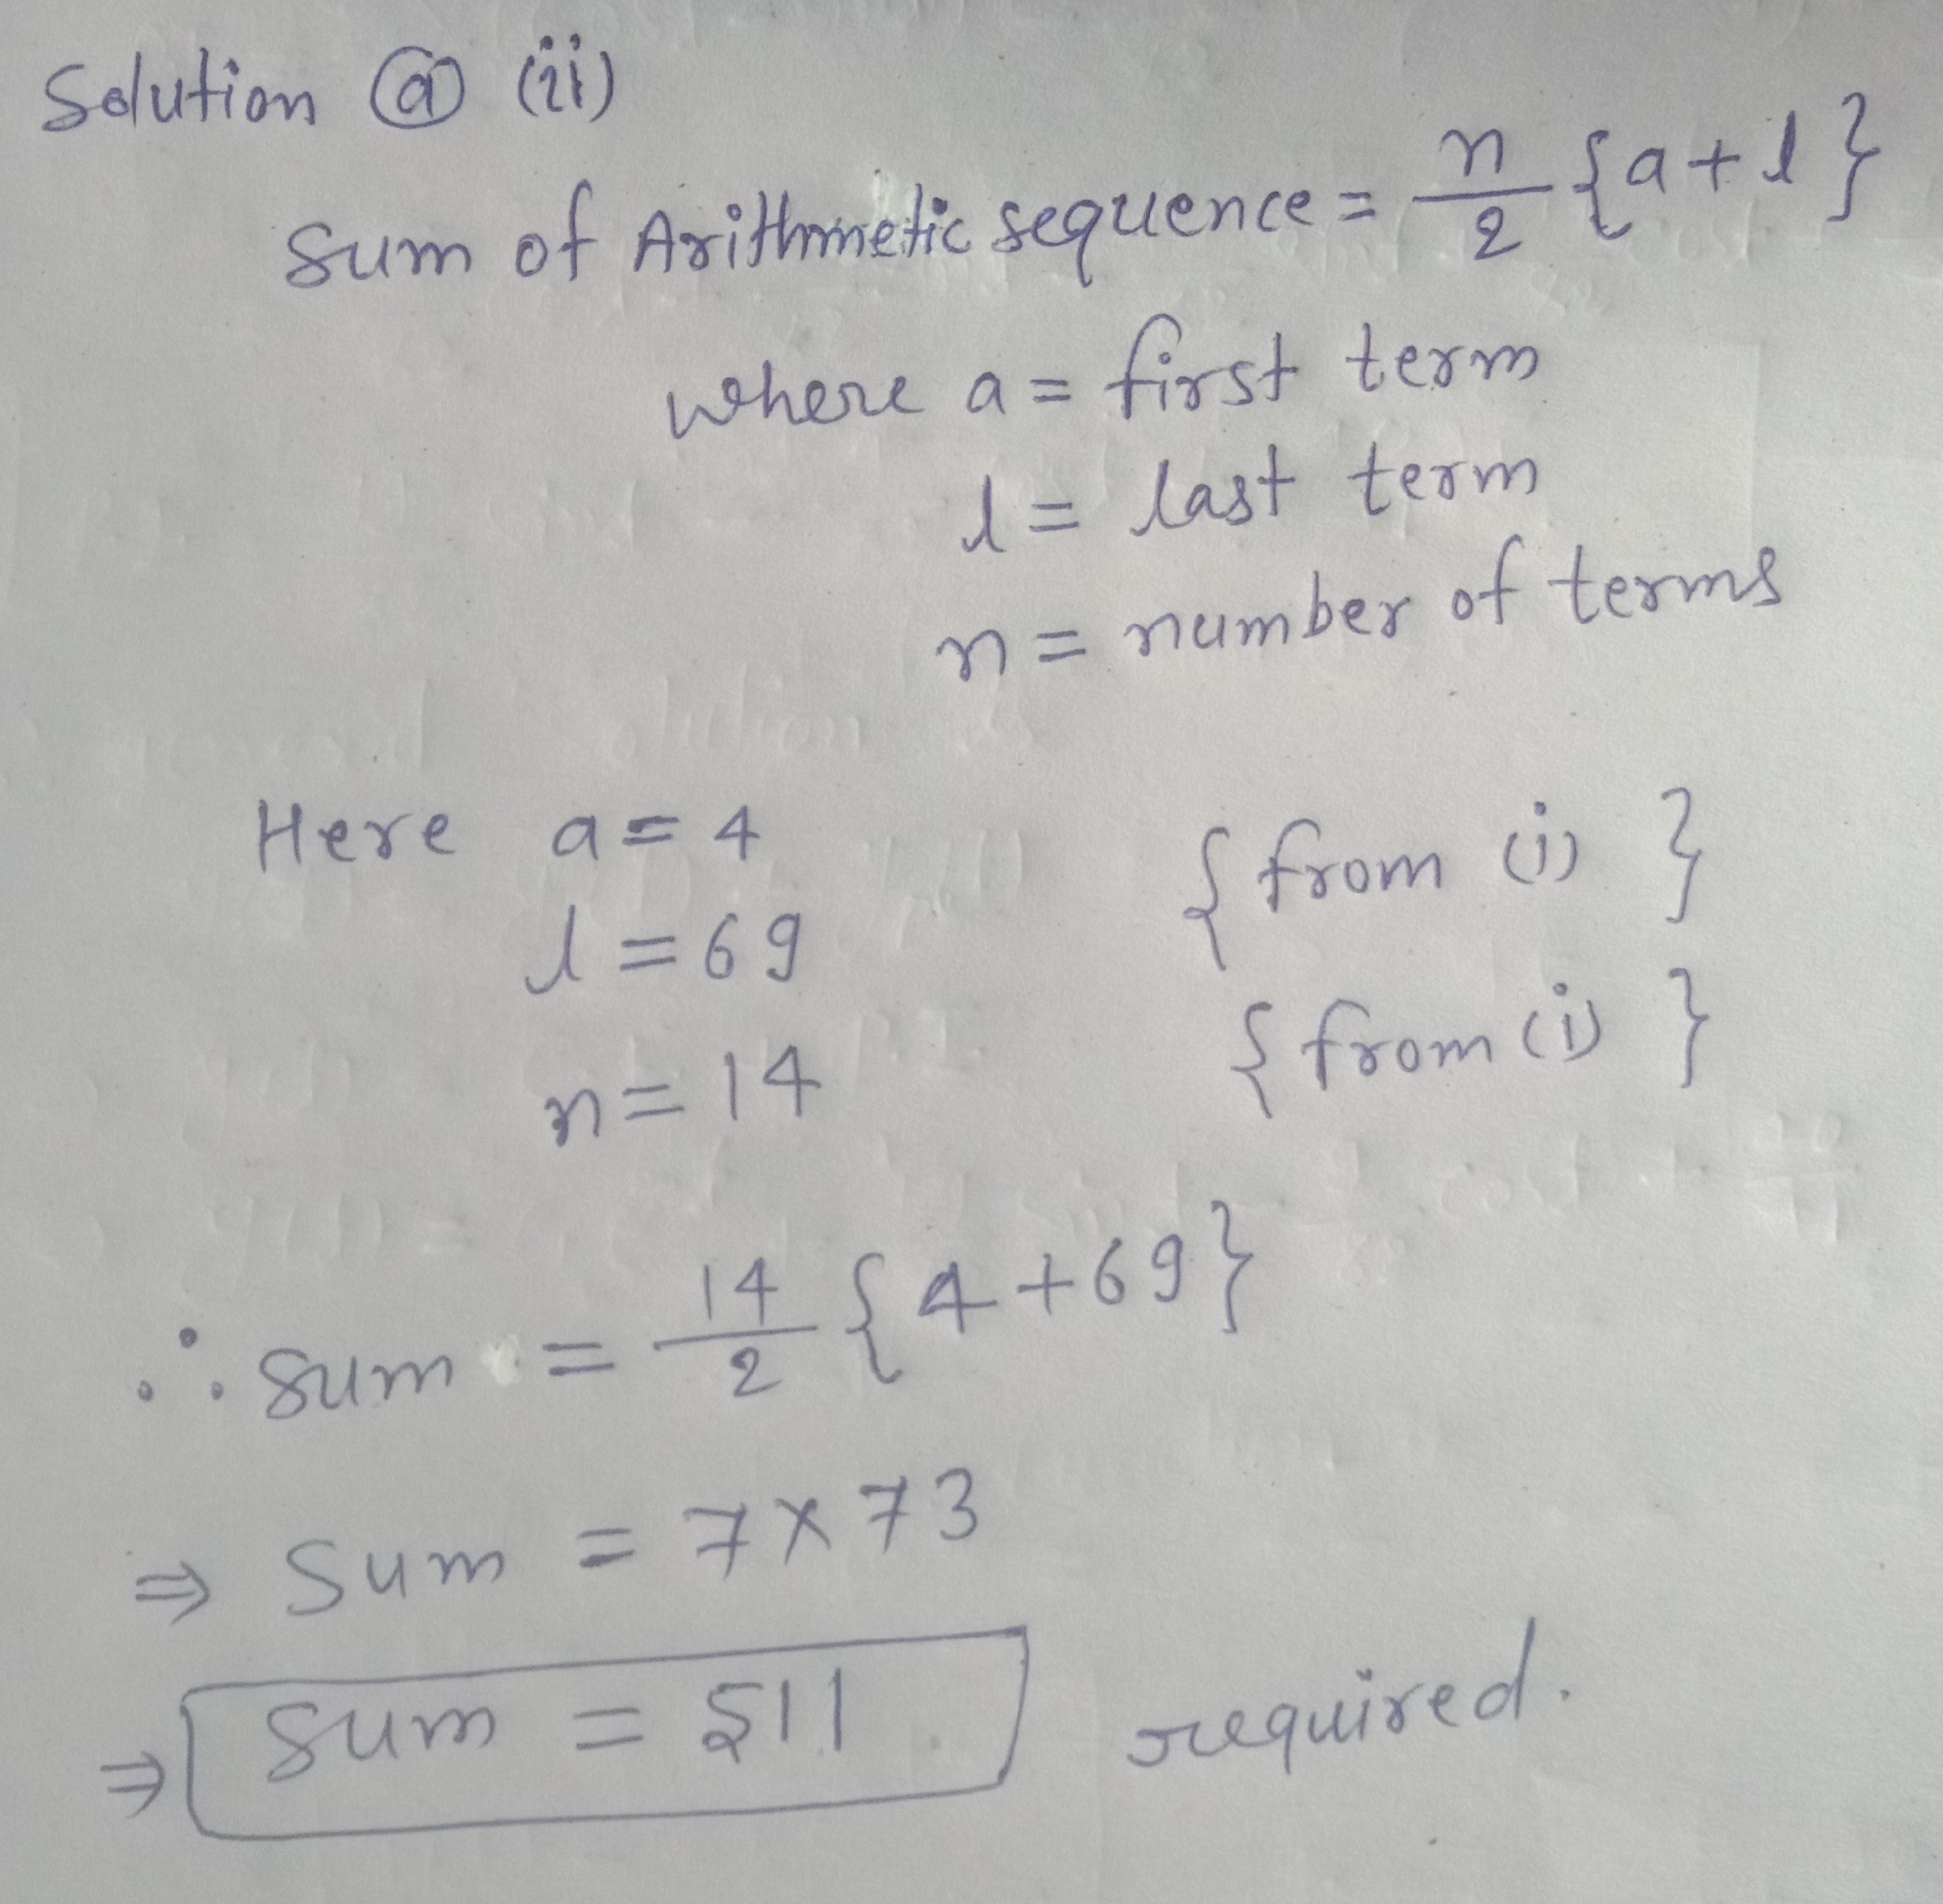 Solution ⓐ (ii)
Sum of Arithmetic sequence = n/2 {a+l}
where a = first term
l = last term
n = number of terms
Here a = 4 {from (i)}
l = 69
n = 14 {from (i)}
∴ Sum = 14/2 {4+69}
⇒ Sum = 7×73
⇒ Sum = 511 required.